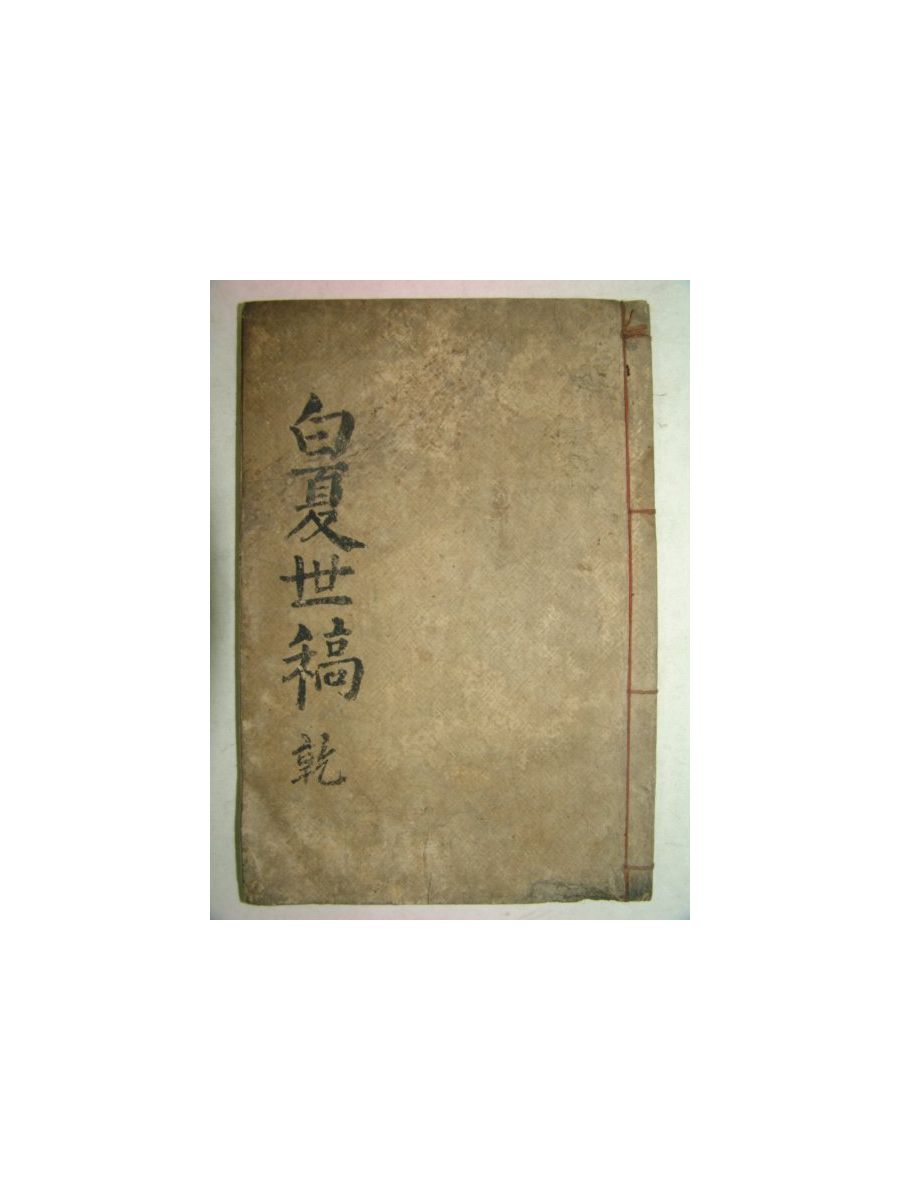 白夏世稿 乾